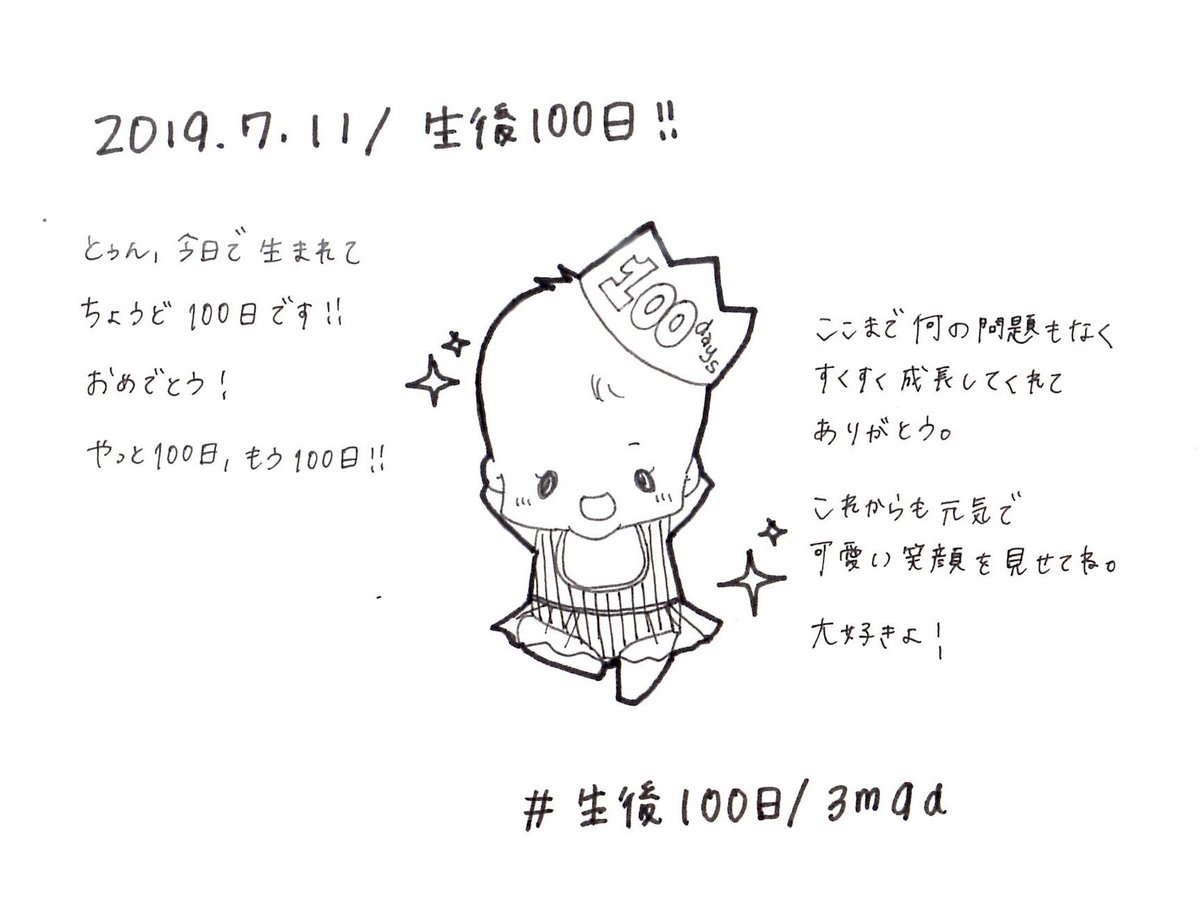 2019.7.11/ 生後100日!!
とぅん, 今日で 生まれて
ちょうど 100日です!!
おめでとう!
やっと100日, もう100日!!
100
days
ここまで 何の問題もなく
すくすく 成長してくれて
ありがとう。
これからも 元気で
可愛い 笑顔を見せてね。
大好きよ!
# 生後100日/ 3m9d